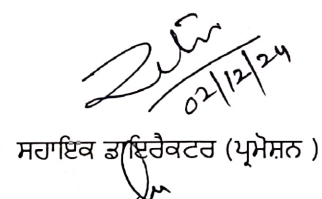 02/12/24
ਸਹਾਇਕ ਡਾਇਰੈਕਟਰ (ਪ੍ਰਮੋਸ਼ਨ )